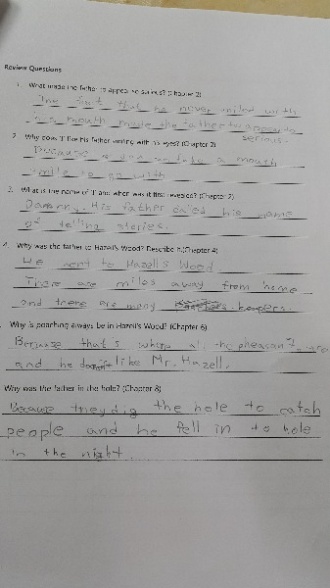 Review Questions
1. What made the father to appear so serious? (Chapter 2)
The fact that he never smiled with
his mouth made the father to
serious.
2. Why does 'I' like his father smiling with his eyes? (Chapter 2)
Because a mouth
smile to go with
3. What is the name of 'I' and when was it first revealed? (Chapter 2)
Danny. His father called his name
of telling stories.
4. Why was the father to Hazell's Wood? Describe it. (Chapter 4)
He went to Hazell's Wood
There are miles away from home
and there are many keepers.
Why is poaching always be in Hazell's Wood? (Chapter 6)
Because that's where all the pheasants
and he doesn't like Mr. Hazell.
Why was the father in the hole? (Chapter 8)
Because they dig the hole to catch
people and he fell in to hole
in the night.